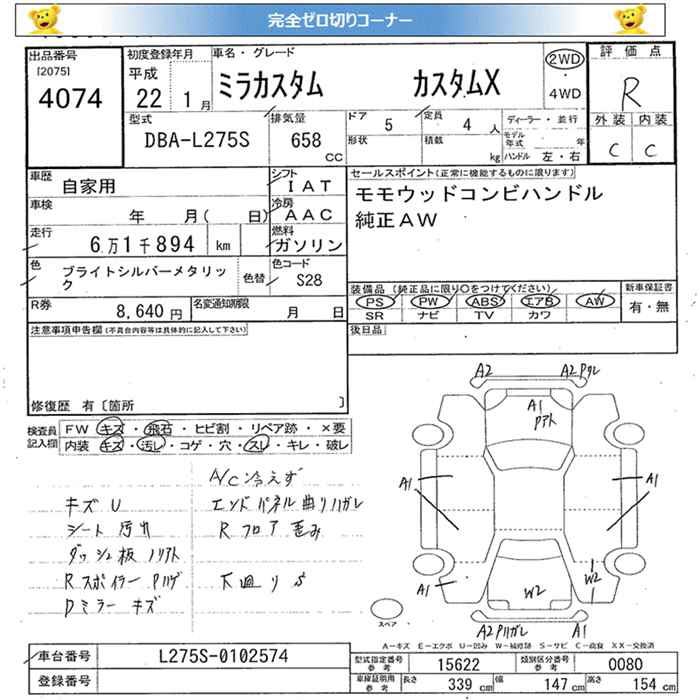 完全ゼロ切りコーナー
出品番号 初度登録年月 車名・グレード 評価点
[2075] 平成 ミラカスタム カスタムX 2WD
4074 22 1月 ・4WD R
型式 排気量 ドア 5 定員 4 人 ディーラー・並行 外装 内装
DBA-L275S 658 CC 形状 積載 kg モデル年式 年 C C
ハンドル 左・右
車歴 自家用 シフト IAT セールスポイント(正常に機能するものに限ります)
車検 年 月( 日) 冷房 AAC モモウッドコンビハンドル
走行 6万1千894 km 燃料 ガソリン 純正AW
色 ブライトシルバーメタリック 色替 色コード S28
装備品(純正品に限り○をつけてください) 新車保証書
PS PW ABS エアB AW 有・無
SR ナビ TV カワ
R券 8,640円 名変通知期限 月 日
後日品
注意事項申告欄(不具合内容等は具体的に記入して下さい)
修復歴 有〔箇所 〕
検査員記入欄 FW キズ・飛石・ヒビ割・リペア跡・×要
内装 キズ・汚レ・コゲ・穴・スレ・キレ・破レ
A/C冷えず
キズU エンドパネル曲りハガレ
シート汚れ Rフロア歪み
ダッシュ板ノリアト
Rスポイラー Pハゲ 下廻りS
Dミラー キズ
A2 A2 Pハゲ
A1
Pアト
A1 A1
A1 W2 W2
A2 Pハガレ A1
スペア
A-キズ E-エクボ U-凹み W-補修跡 S-サビ C-腐食 XX-交換済
車台番号 L275S-0102574
登録番号
型式指定番号 参考 15622 類別区分番号 参考 0080
車庫証明用 参考 長さ 339 cm 幅 147 cm 高さ 154 cm